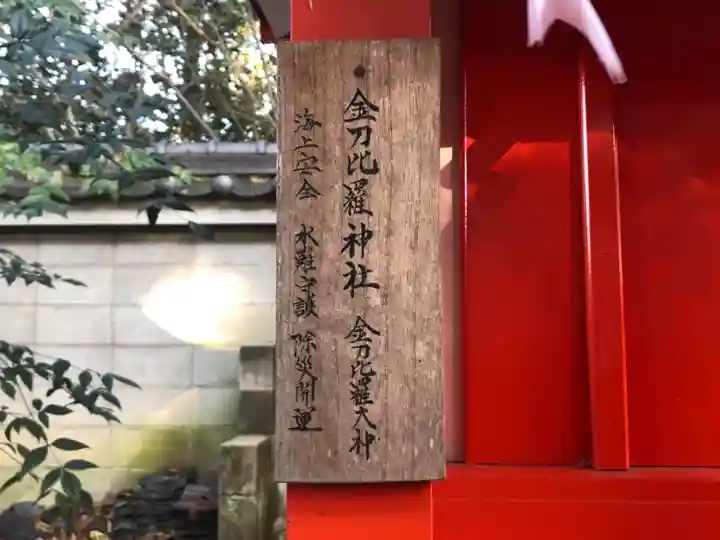 金刀比羅神社 金刀比羅大神
海上安全 水難守護 除災開運